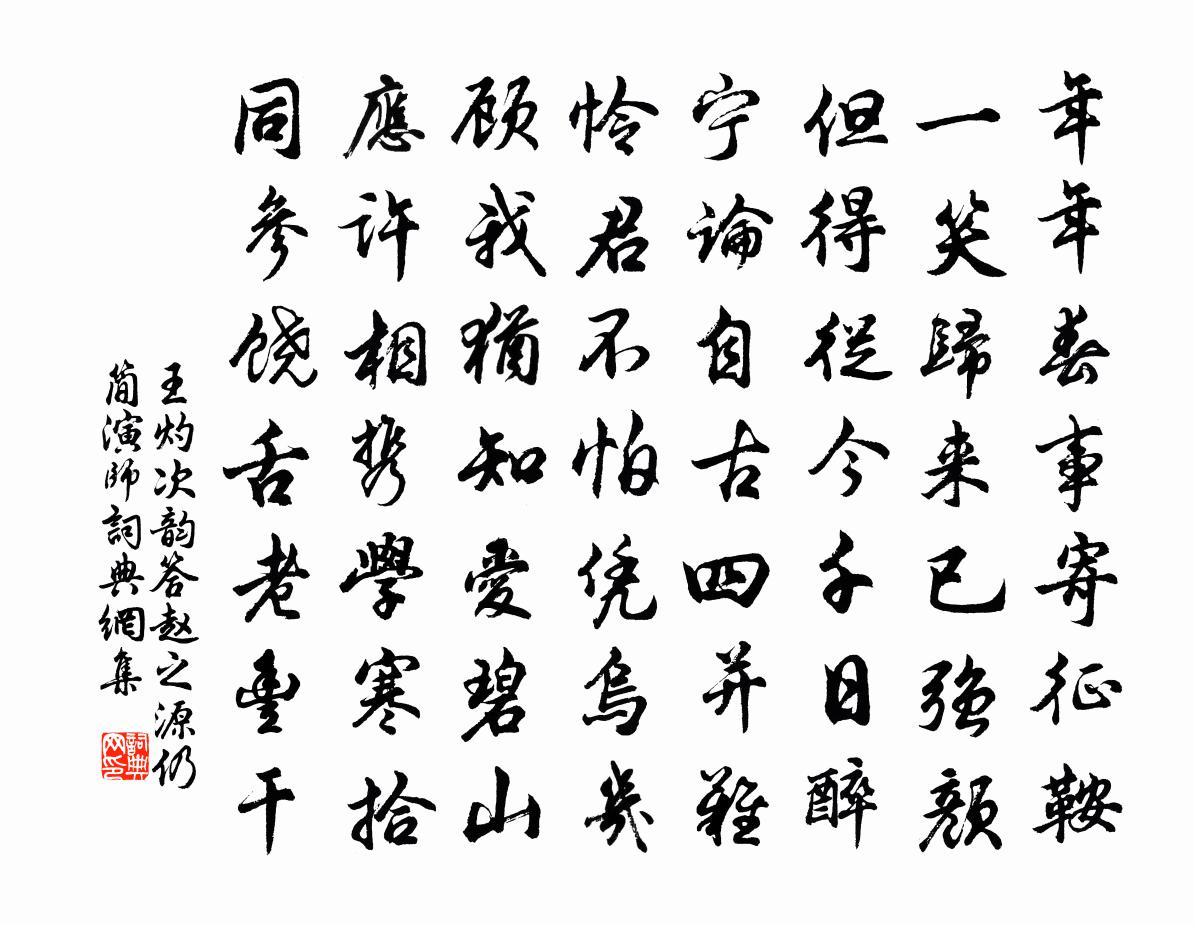 年年春事寄征鞍
一笑歸来已強顔
但得從今千日醉
宁論自古四并難
怜君不怕凭烏几
顾我猶知愛碧山
應許相携學寒拾
同參饶舌老豊干
王灼次韵答赵之源仍
简演師詞典網集
詞典网印